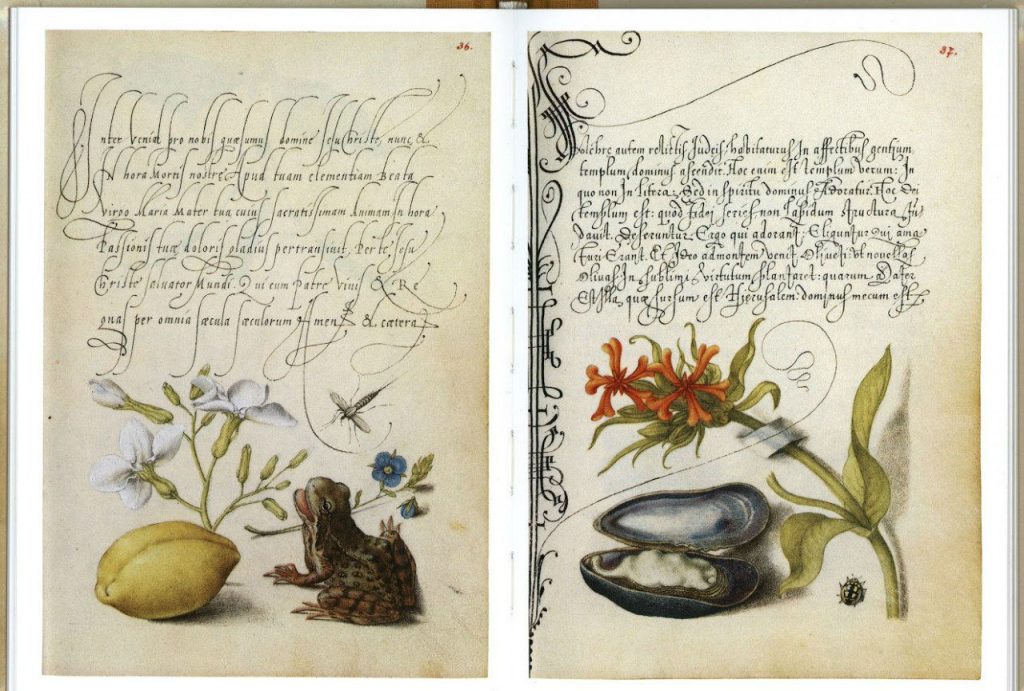 36.
Inter venia pro nobis quæsumus domine Jesu Christe, nunc &
IN hora Mortis nostre Apud tuam clementiam Beata
Virgo Maria Mater tua cuius sacratissimam Animam In hora
Passionis tuæ doloris gladius pertransiuit. Per te Jesu
Christe saluator Mundi. Qui cum Patre viuis & Re
gnas per omnia sæcula sæculorum Amen, & cætera,
37.
Solebre autem relictis Judeis habitaturus In affectibus gentium
templum dominus ascendit. Hoc enim est templum verum: In
quo non In litera: Sed in spiritu dominus Adoratur. Hoc Dei
templum est: quod fidej series non Lapidum structura fu
dauit. Deseruntur Ergo qui adorant: Eliguntur Qui ama
turi Erant. Et Ideo ad montem venit Oliueti: vt nouellas
Oliuas In sublimi virtutum plantaret: quarum
Est Illa, quæ sursum est Hjerusalem: dominus mecum est,